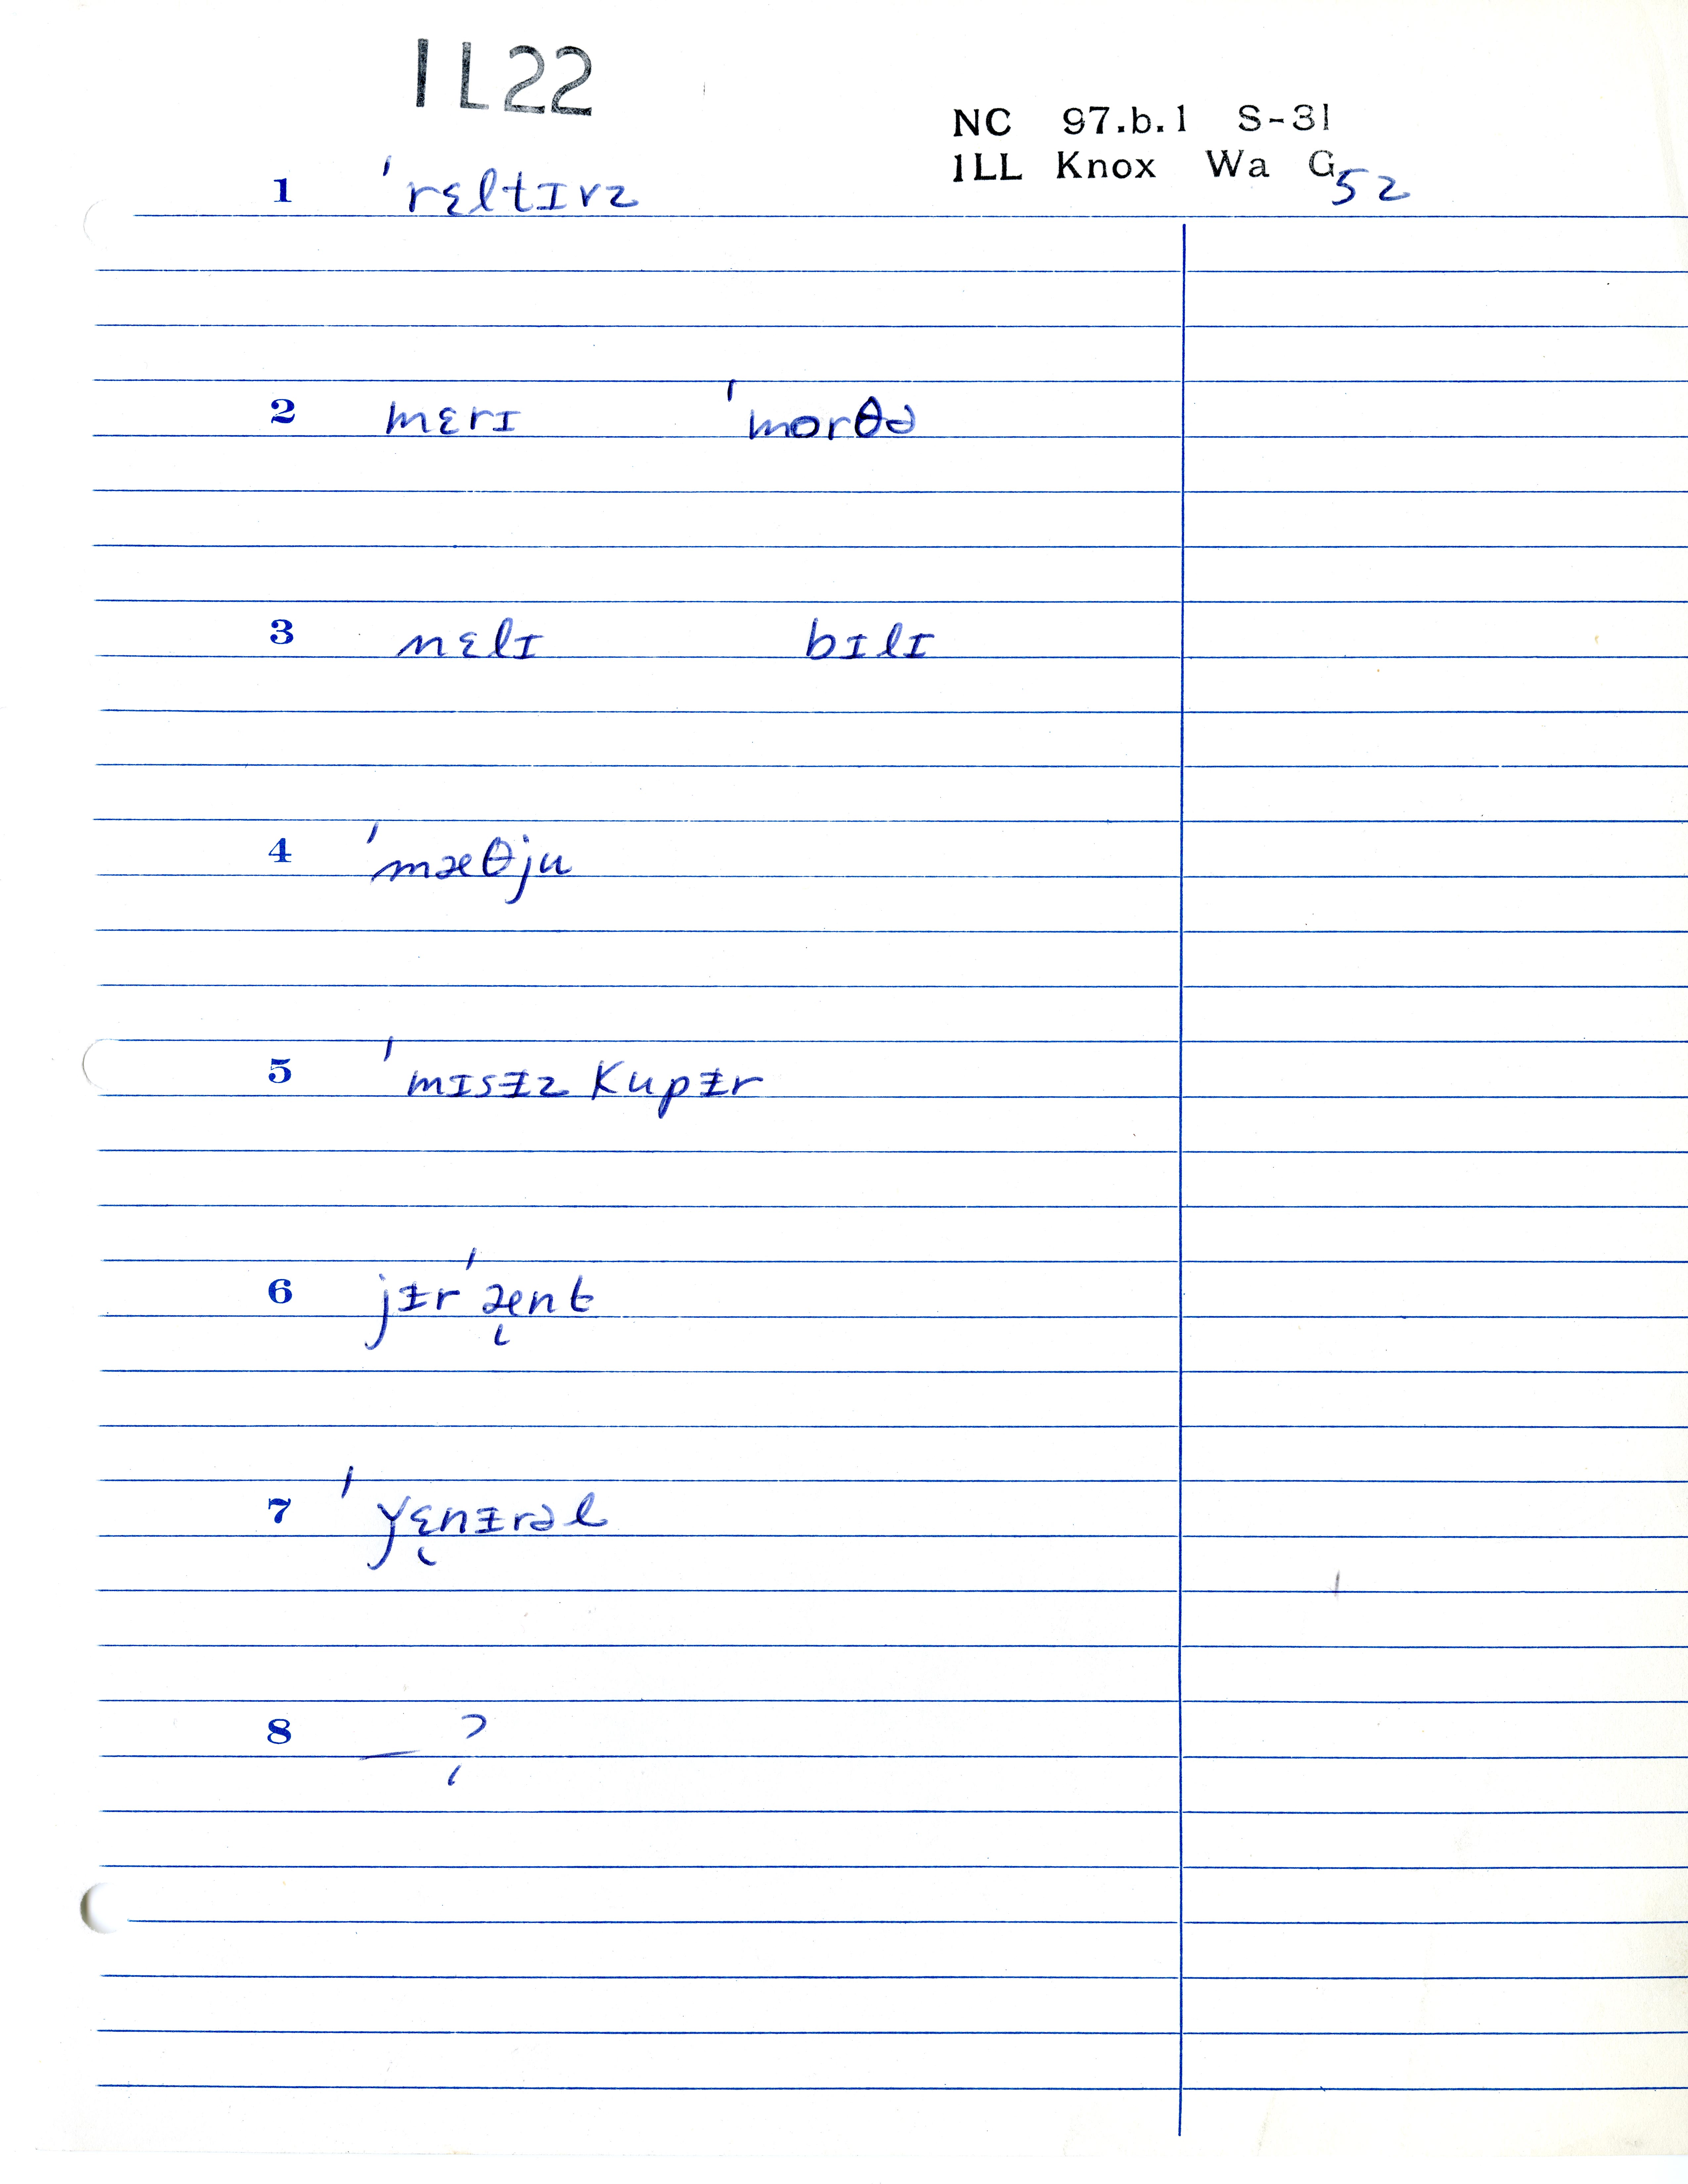 1L22
NC 97.b.1 S-31
1LL Knox Wa G52
1 ˈrɛltɪvz
2 mɛrɪ ˈmorθə
3 nɛlɪ bɪlɪ
4 ˈmæθju
5 ˈmɪsᵻz kupᵻr
6 jᵻrˈæ̨nt
7 ˈyɛ̨nᵻrəl
8 — ?